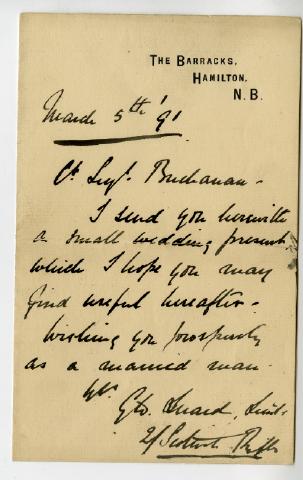 THE BARRACKS,
HAMILTON,
N. B.
March 5th '91
Cr Sergt. Buchanan -
I send you herewith
a small wedding present
which I hope you may
find useful hereafter -
Wishing you prosperity
as a married man -
Lieut.
2/Scottish Rifles